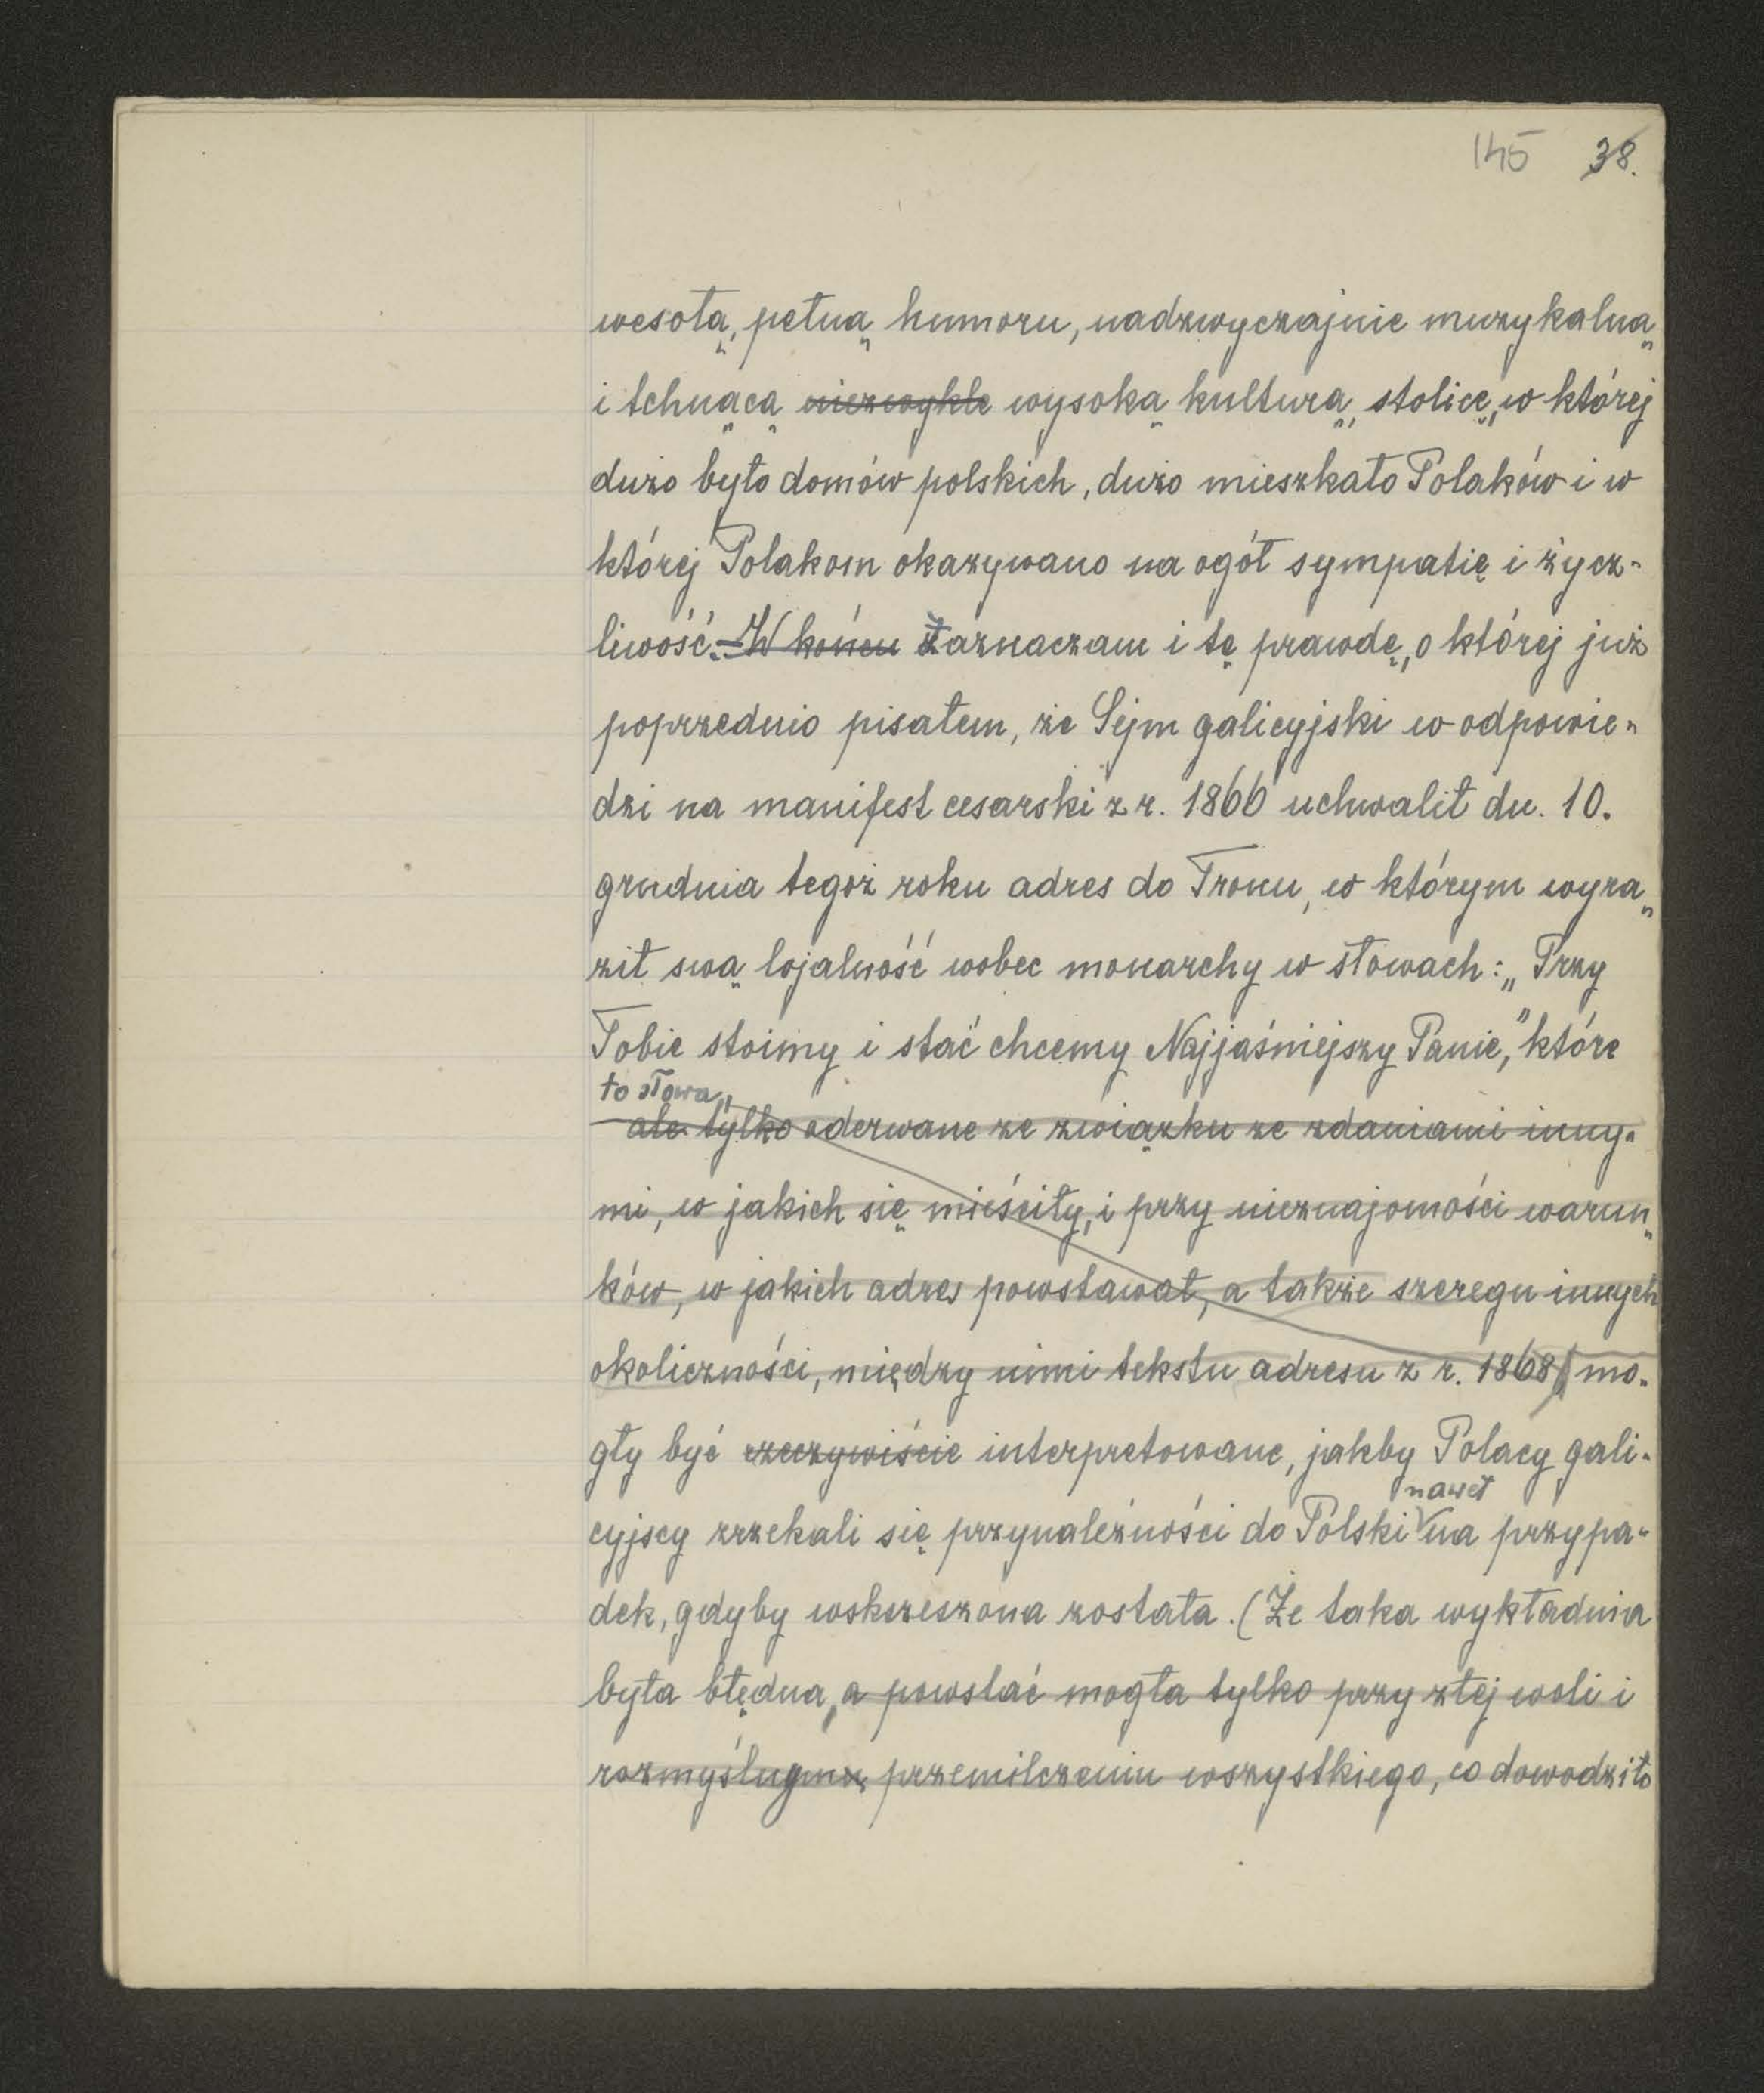 145 38.
wesołą, pełną humoru, nadzwyczajnie muzykalną
i tchnącą niezwykle wysoką kulturą, stolicę, w której
dużo było domów polskich, dużo mieszkało Polaków i w
której Polakom okazywano na ogół sympatię i życz-
liwość. – W końcu Zaznaczam i tę prawdę, o której już
poprzednio pisałem, że Sejm galicyjski w odpowie-
dzi na manifest cesarski z r. 1866 uchwalił dn. 10.
grudnia tegoż roku adres do Tronu, w którym wyra-
ził swą lojalność wobec monarchy w słowach: „Przy
Tobie stoimy i stać chcemy Najjaśniejszy Panie," które
to słowa,
ale tylko oderwane ze związku ze zdaniami inny-
mi, w jakich się mieściły, i przy nieznajomości warun-
ków, w jakich adres powstawał, a także szeregu innych
okoliczności, między nimi tekstu adresu z r. 1868, mo-
gły być rzeczywiście interpretowane, jakby Polacy gali-
nawet
cyjscy zrzekali się przynależności do Polski na przypa-
dek, gdyby wskrzeszona została. (Że taka wykładnia
była błędna, a powstać mogła tylko przy złej woli i
rozmyślnym przemilczeniu wszystkiego, co dowodziło